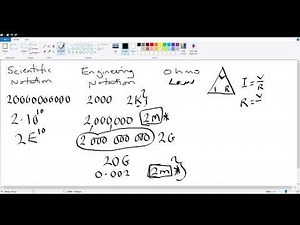 Scientific Notation
20000000000
2·10¹⁰
2E¹⁰
Engineering Notation
2000 2K
2,000,000 2m *
2 000 000 000 2G
20G
0.002 2m *
Ohms Laws
V
I R
I = V/R
R = V